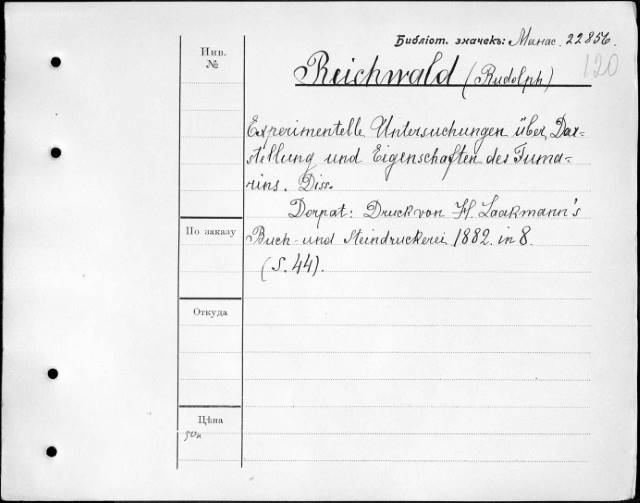 Библіот. значекъ: Манас. 22856.
120
Инв.
№
Reichwald (Rudolph)
Experimentelle Untersuchungen über Dar-
stellung und Eigenschaften des Fuma-
rins. Diss.
Dorpat: Druck von H. Laakmann's
По заказу
Buch- und Steindruckerei 1882. in 8.
(S. 44).
Откуда
Цѣна
50к